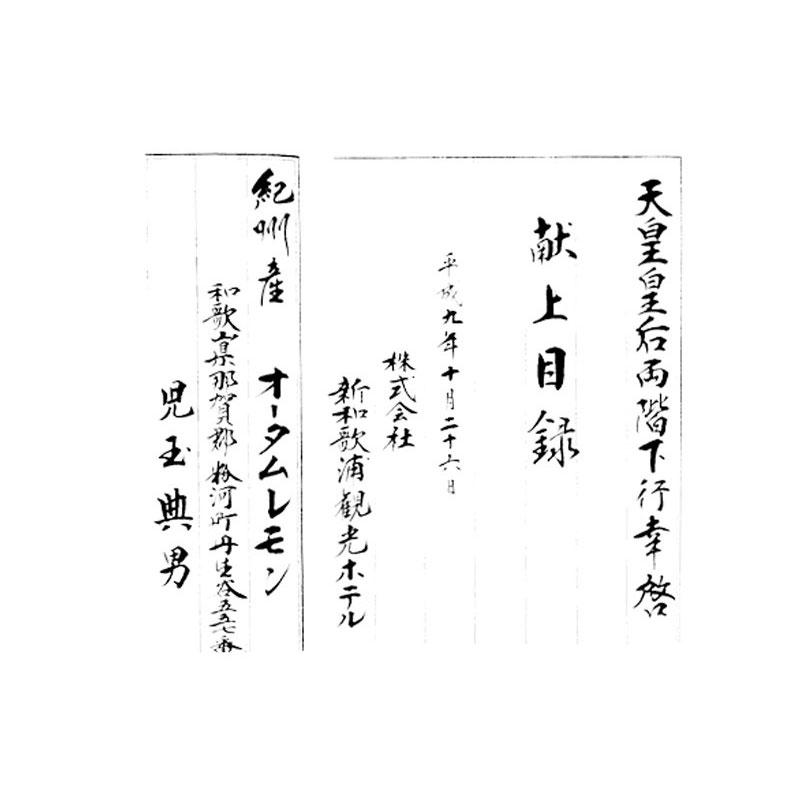 天皇皇后両陛下行幸啓
献上目録
平成九年十月二十六日
株式会社
新和歌浦観光ホテル
紀州産 オータムレモン
和歌山県那賀郡粉河町丹生谷五五七番
児玉典男